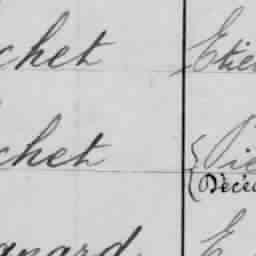 chet Etie
chet Pie
(Décéd
gnard E